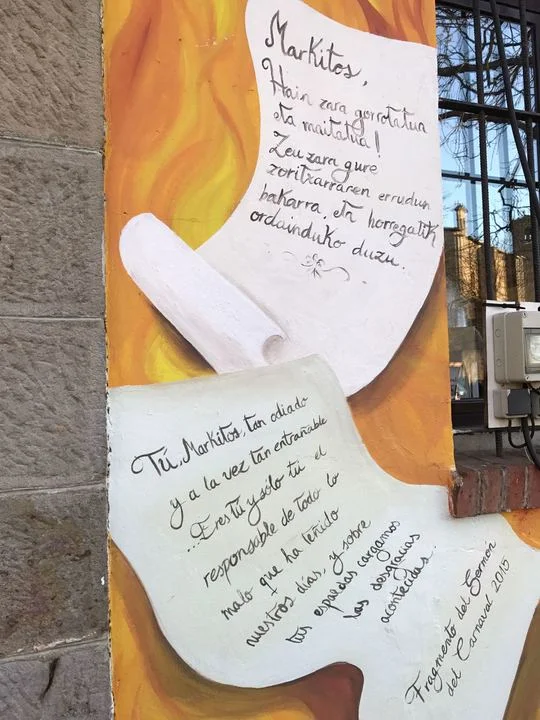 Markitos,
Hain zara gorrotatua
eta maitatua!
Zeu zara gure
zoritxarraren errudun
bakarra, eta horregatik
ordainduko duzu.
Tú, Markitos, tan odiado
y a la vez tan entrañable
...Eres tú y sólo tú el
responsable de todo lo
malo que ha teñido
nuestros días, y sobre
tus espaldas cargamos
las desgracias
acontecidas.
Fragmento del Sermón
del Carnaval 2015